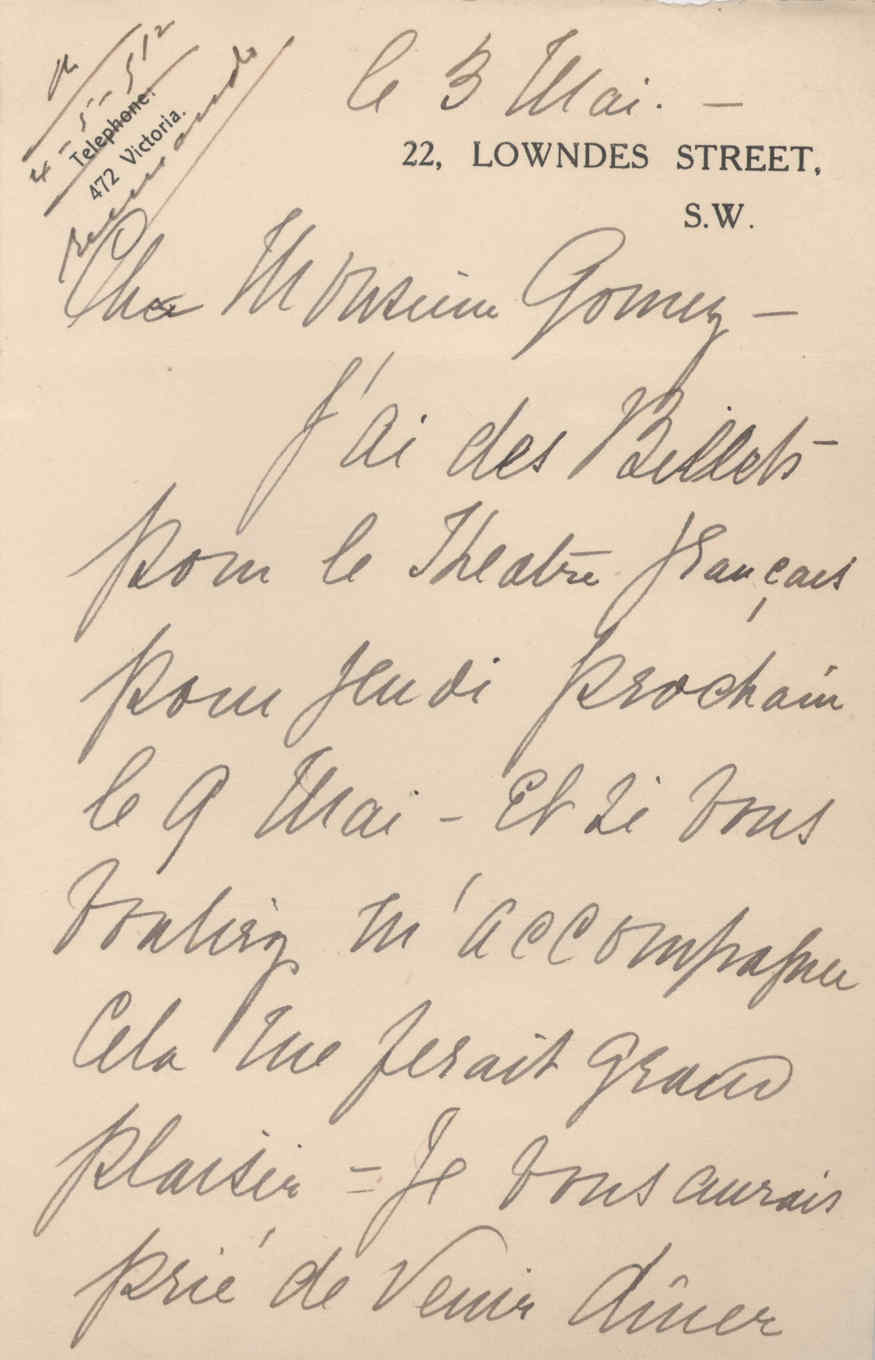 R
4-5-912
Telephone:
472 Victoria.
le 3 Mai. —
22, LOWNDES STREET,
S.W.
Cher Monsieur Gomez —
J'ai des Billets
pour le Théatre français
pour jeudi prochain
le 9 Mai - Et si vous
vouliez m'accompagner
Cela me ferait grand
plaisir = Je vous aurais
prié de venir dîner